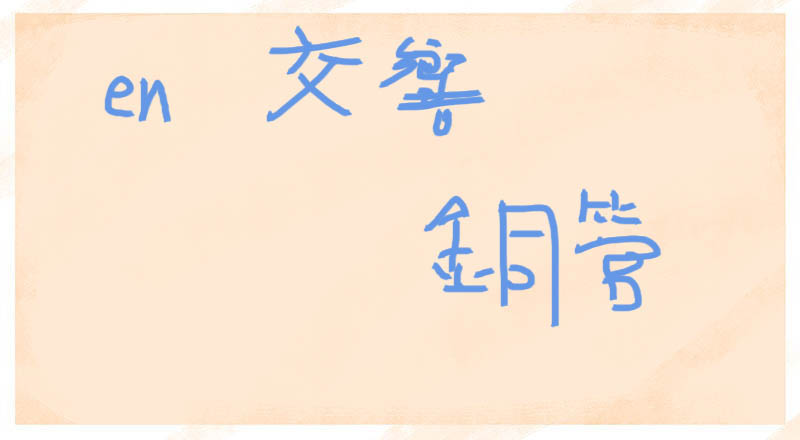 en 交響
銅管